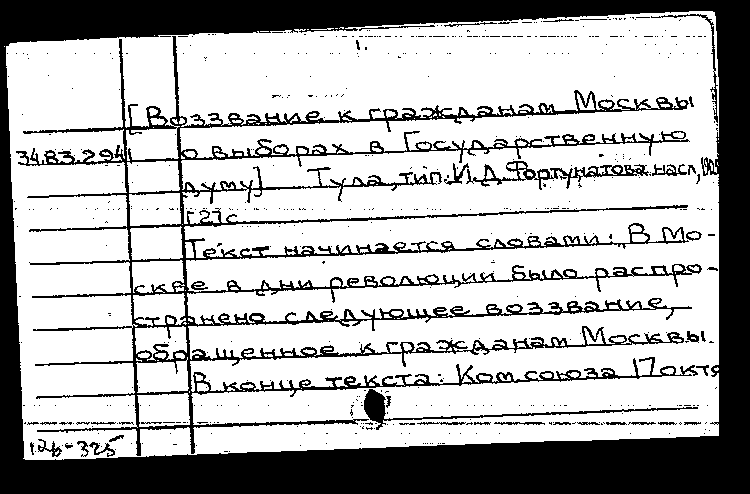 1.
[Воззвание к гражданам Москвы
34.83.294 о выборах в Государственную
думу] Тула, тип. И.Д. Фортунатова насл.,
[2] с
Текст начинается словами: „В Мо-
скве в дни революции было распро-
странено следующее воззвание,
обращенное к гражданам Москвы.
В конце текста: Ком. союза 17 октя